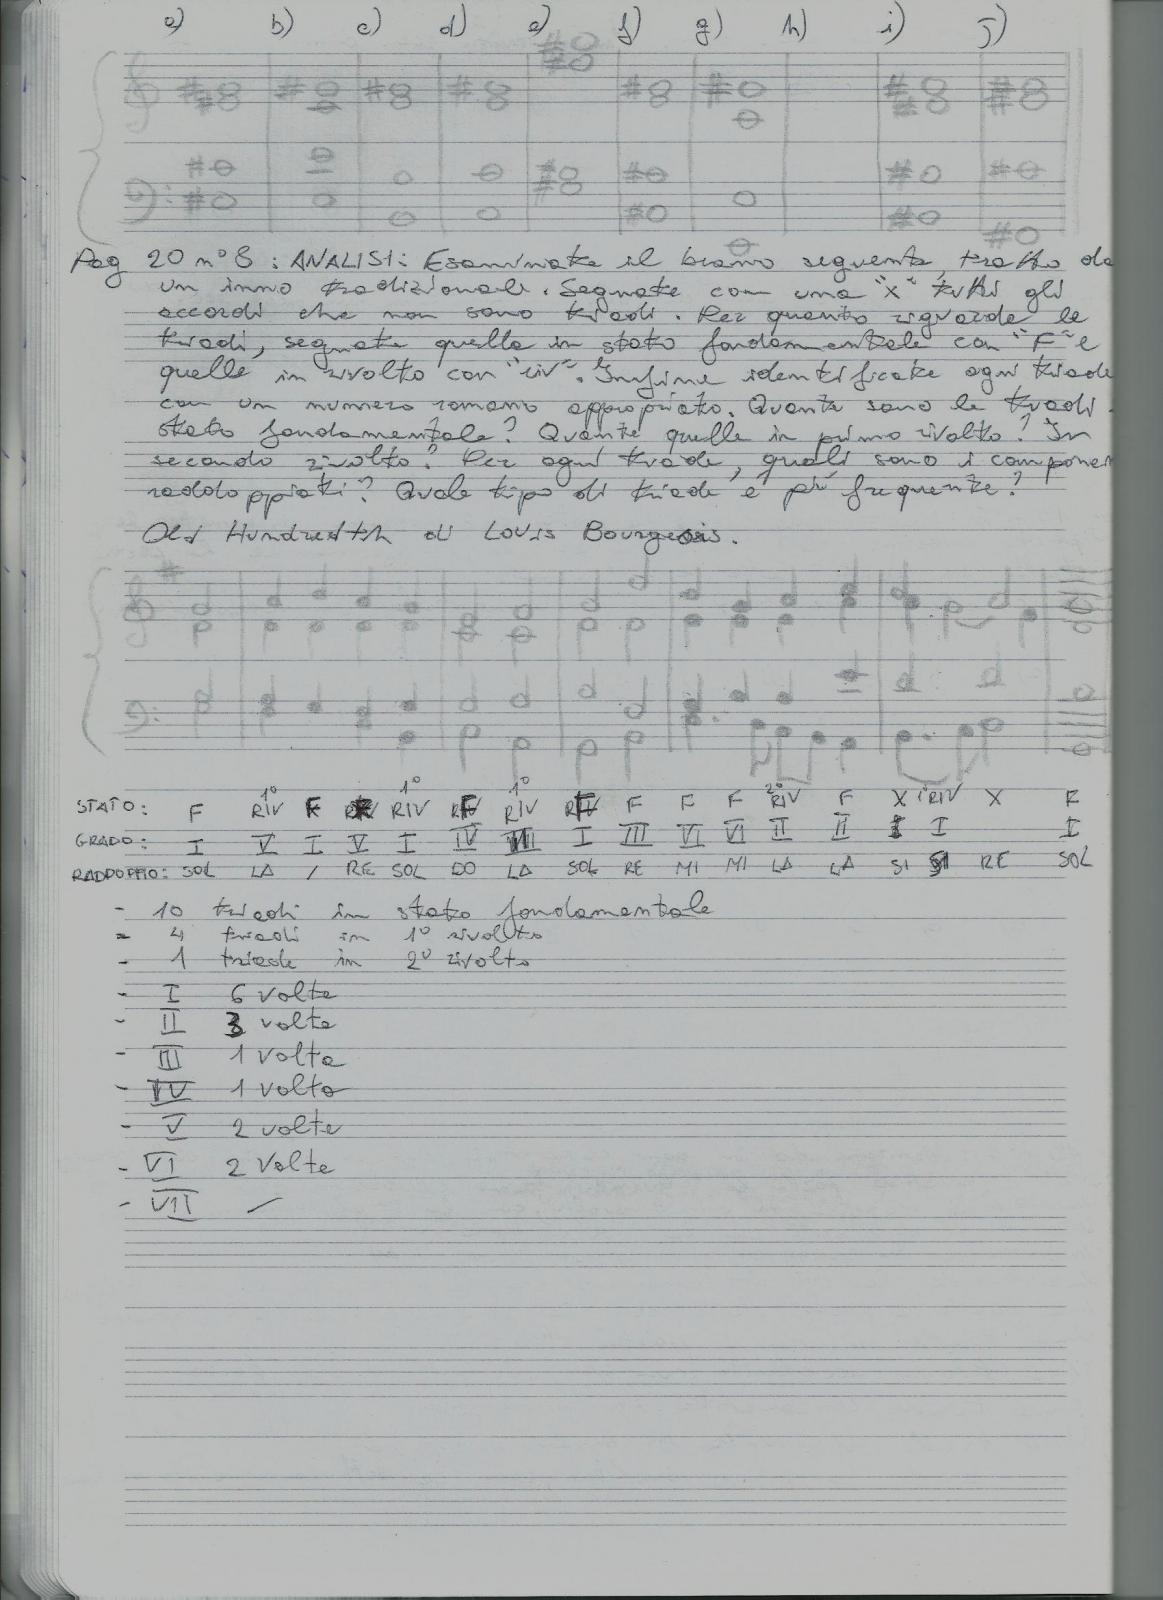 a) b) c) d) e) f) g) h) i) j)
Pag 20 n° 8 : ANALISI: Esaminate il brano seguente, tratto da
un inno tradizionale. Segnate con una "X" tutti gli
accordi che non sono triadi. Per quanto riguarda le
triadi, segnate quelle in stato fondamentale con "F" e
quelle in rivolto con "riv". Infine identificate ogni triade
con un numero romano appropriato. Quante sono le triadi
stato fondamentale? Quante quelle in primo rivolto? In
secondo rivolto? Per ogni triade, quali sono i componen
raddoppiati? Quale tipo di triade è più frequente?
Old Hundredth di Louis Bourgeois.
1° 1° 1° 2°
STATO: F RIV F RIV F RIV F F F F RIV F X 1°RIV X F
GRADO: I V I V I IV I III VI VI II II I I
RADDOPPIO: SOL LA / RE SOL DO LA SOL RE MI MI LA LA SI RE SOL
- 10 triadi in stato fondamentale
- 4 triadi in 1° rivolto
- 1 triade in 2° rivolto
- I 6 volte
- II 3 volte
- III 1 volta
- IV 1 volta
- V 2 volte
- VI 2 Volte
- VII /